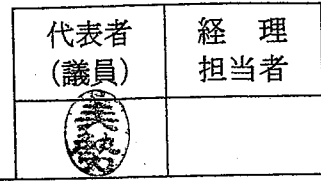 代表者
(議員)
経理
担当者